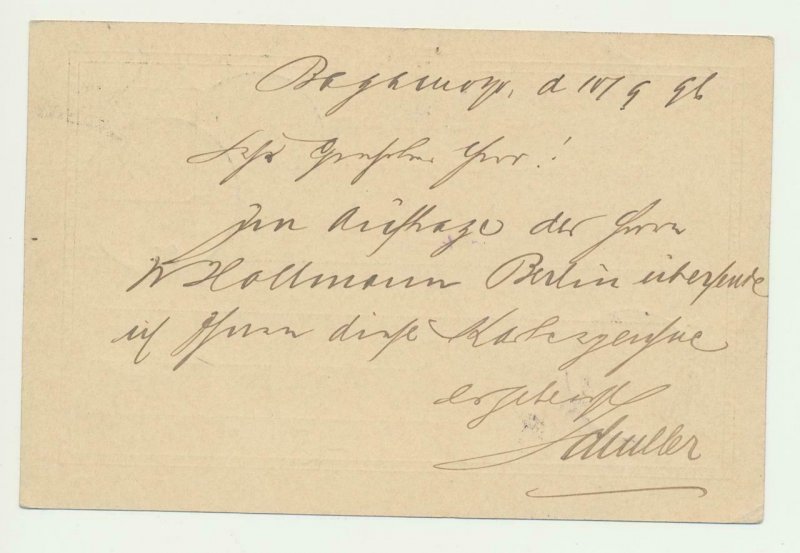 Bagamoyo, d 10/9 96
Sehr geehrter Herr!
Im Auftrage des Herrn
W Hollmann Berlin übersende
ich Ihnen diese Karte zeichne
ergebenst
Schuller